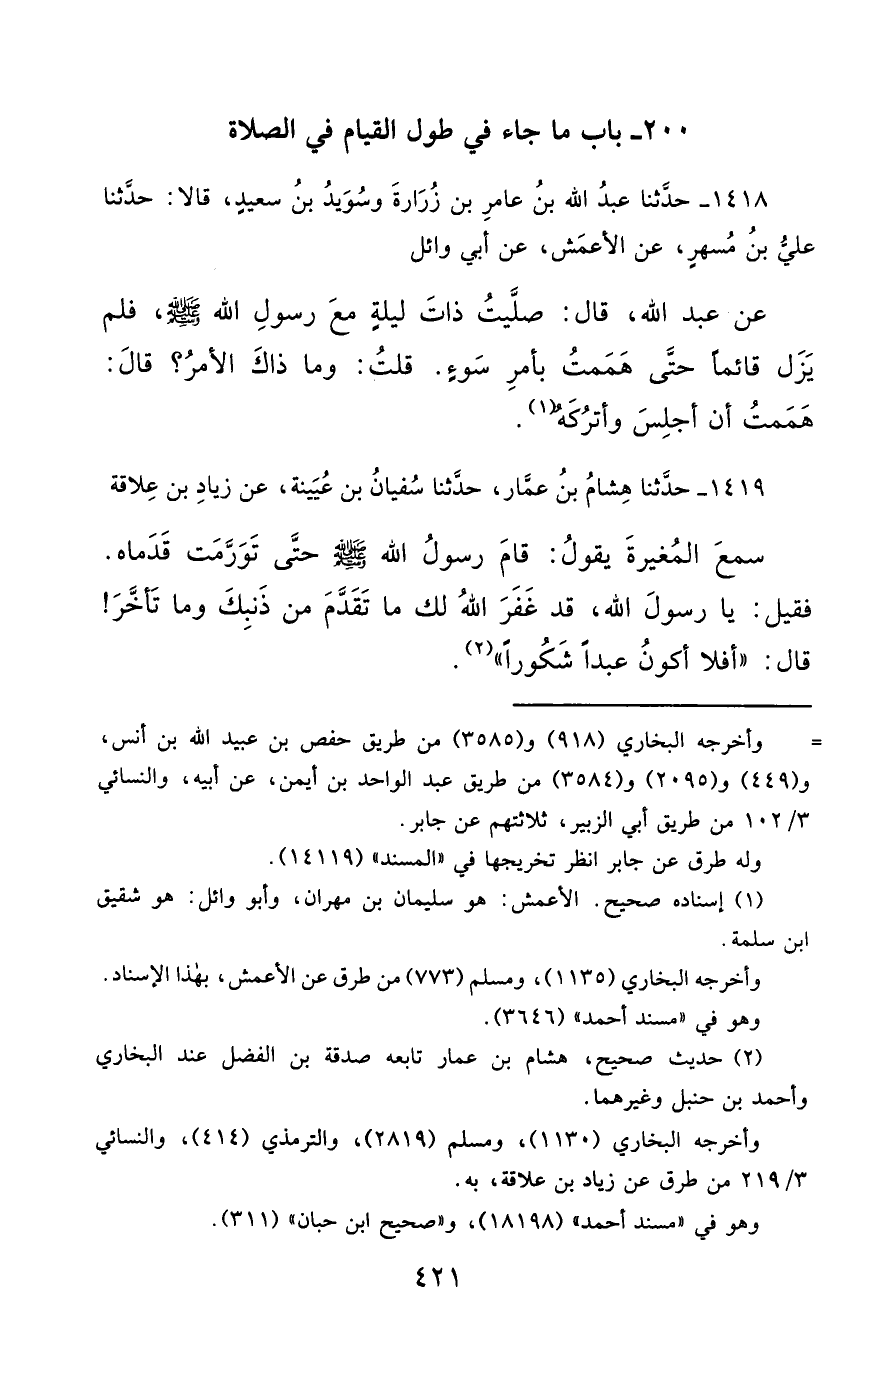 ٢٠٠ـ باب ما جاء في طول القيام في الصلاة
١٤١٨ـ حدَّثنا عبدُ الله بنُ عامرِ بن زُرَارةَ وسُوَيدُ بنُ سعيدٍ، قالا: حدَّثنا
عليُّ بنُ مُسهرٍ، عن الأعمَش، عن أبي وائل
عن عبد الله، قال: صلَّيتُ ذاتَ ليلةٍ معَ رسولِ الله ﷺ، فلم
يَزَل قائماً حتَّى هَمَمتُ بأمرِ سَوءٍ. قلتُ: وما ذاكَ الأمرُ؟ قالَ:
هَمَمتُ أن أجلِسَ وأترُكَهُ(١).
١٤١٩ـ حدَّثنا هِشامُ بنُ عمَّار، حدَّثنا سُفيانُ بن عُيَينة، عن زيادِ بن عِلاقة
سمعَ المُغيرةَ يقولُ: قامَ رسولُ الله ﷺ حتَّى تَوَرَّمَت قَدَماه.
فقيل: يا رسولَ الله، قد غَفَرَ اللهُ لك ما تَقَدَّمَ من ذَنبِكَ وما تَأخَّرَ!
قال: «أفلا أكونُ عبداً شَكُوراً»(٢).
= وأخرجه البخاري (٩١٨) و(٣٥٨٥) من طريق حفص بن عبيد الله بن أنس،
و(٤٤٩) و(٢٠٩٥) و(٣٥٨٤) من طريق عبد الواحد بن أيمن، عن أبيه، والنسائي
٣/ ١٠٢ من طريق أبي الزبير، ثلاثتهم عن جابر.
وله طرق عن جابر انظر تخريجها في «المسند» (١٤١١٩).
(١) إسناده صحيح. الأعمش: هو سليمان بن مهران، وأبو وائل: هو شقيق
ابن سلمة.
وأخرجه البخاري (١١٣٥)، ومسلم (٧٧٣) من طرق عن الأعمش، بهٰذا الإسناد.
وهو في «مسند أحمد» (٣٦٤٦).
(٢) حديث صحيح، هشام بن عمار تابعه صدقة بن الفضل عند البخاري
وأحمد بن حنبل وغيرهما.
وأخرجه البخاري (١١٣٠)، ومسلم (٢٨١٩)، والترمذي (٤١٤)، والنسائي
٣/ ٢١٩ من طرق عن زياد بن علاقة، به.
وهو في «مسند أحمد» (١٨١٩٨)، و«صحيح ابن حبان» (٣١١).
٤٢١